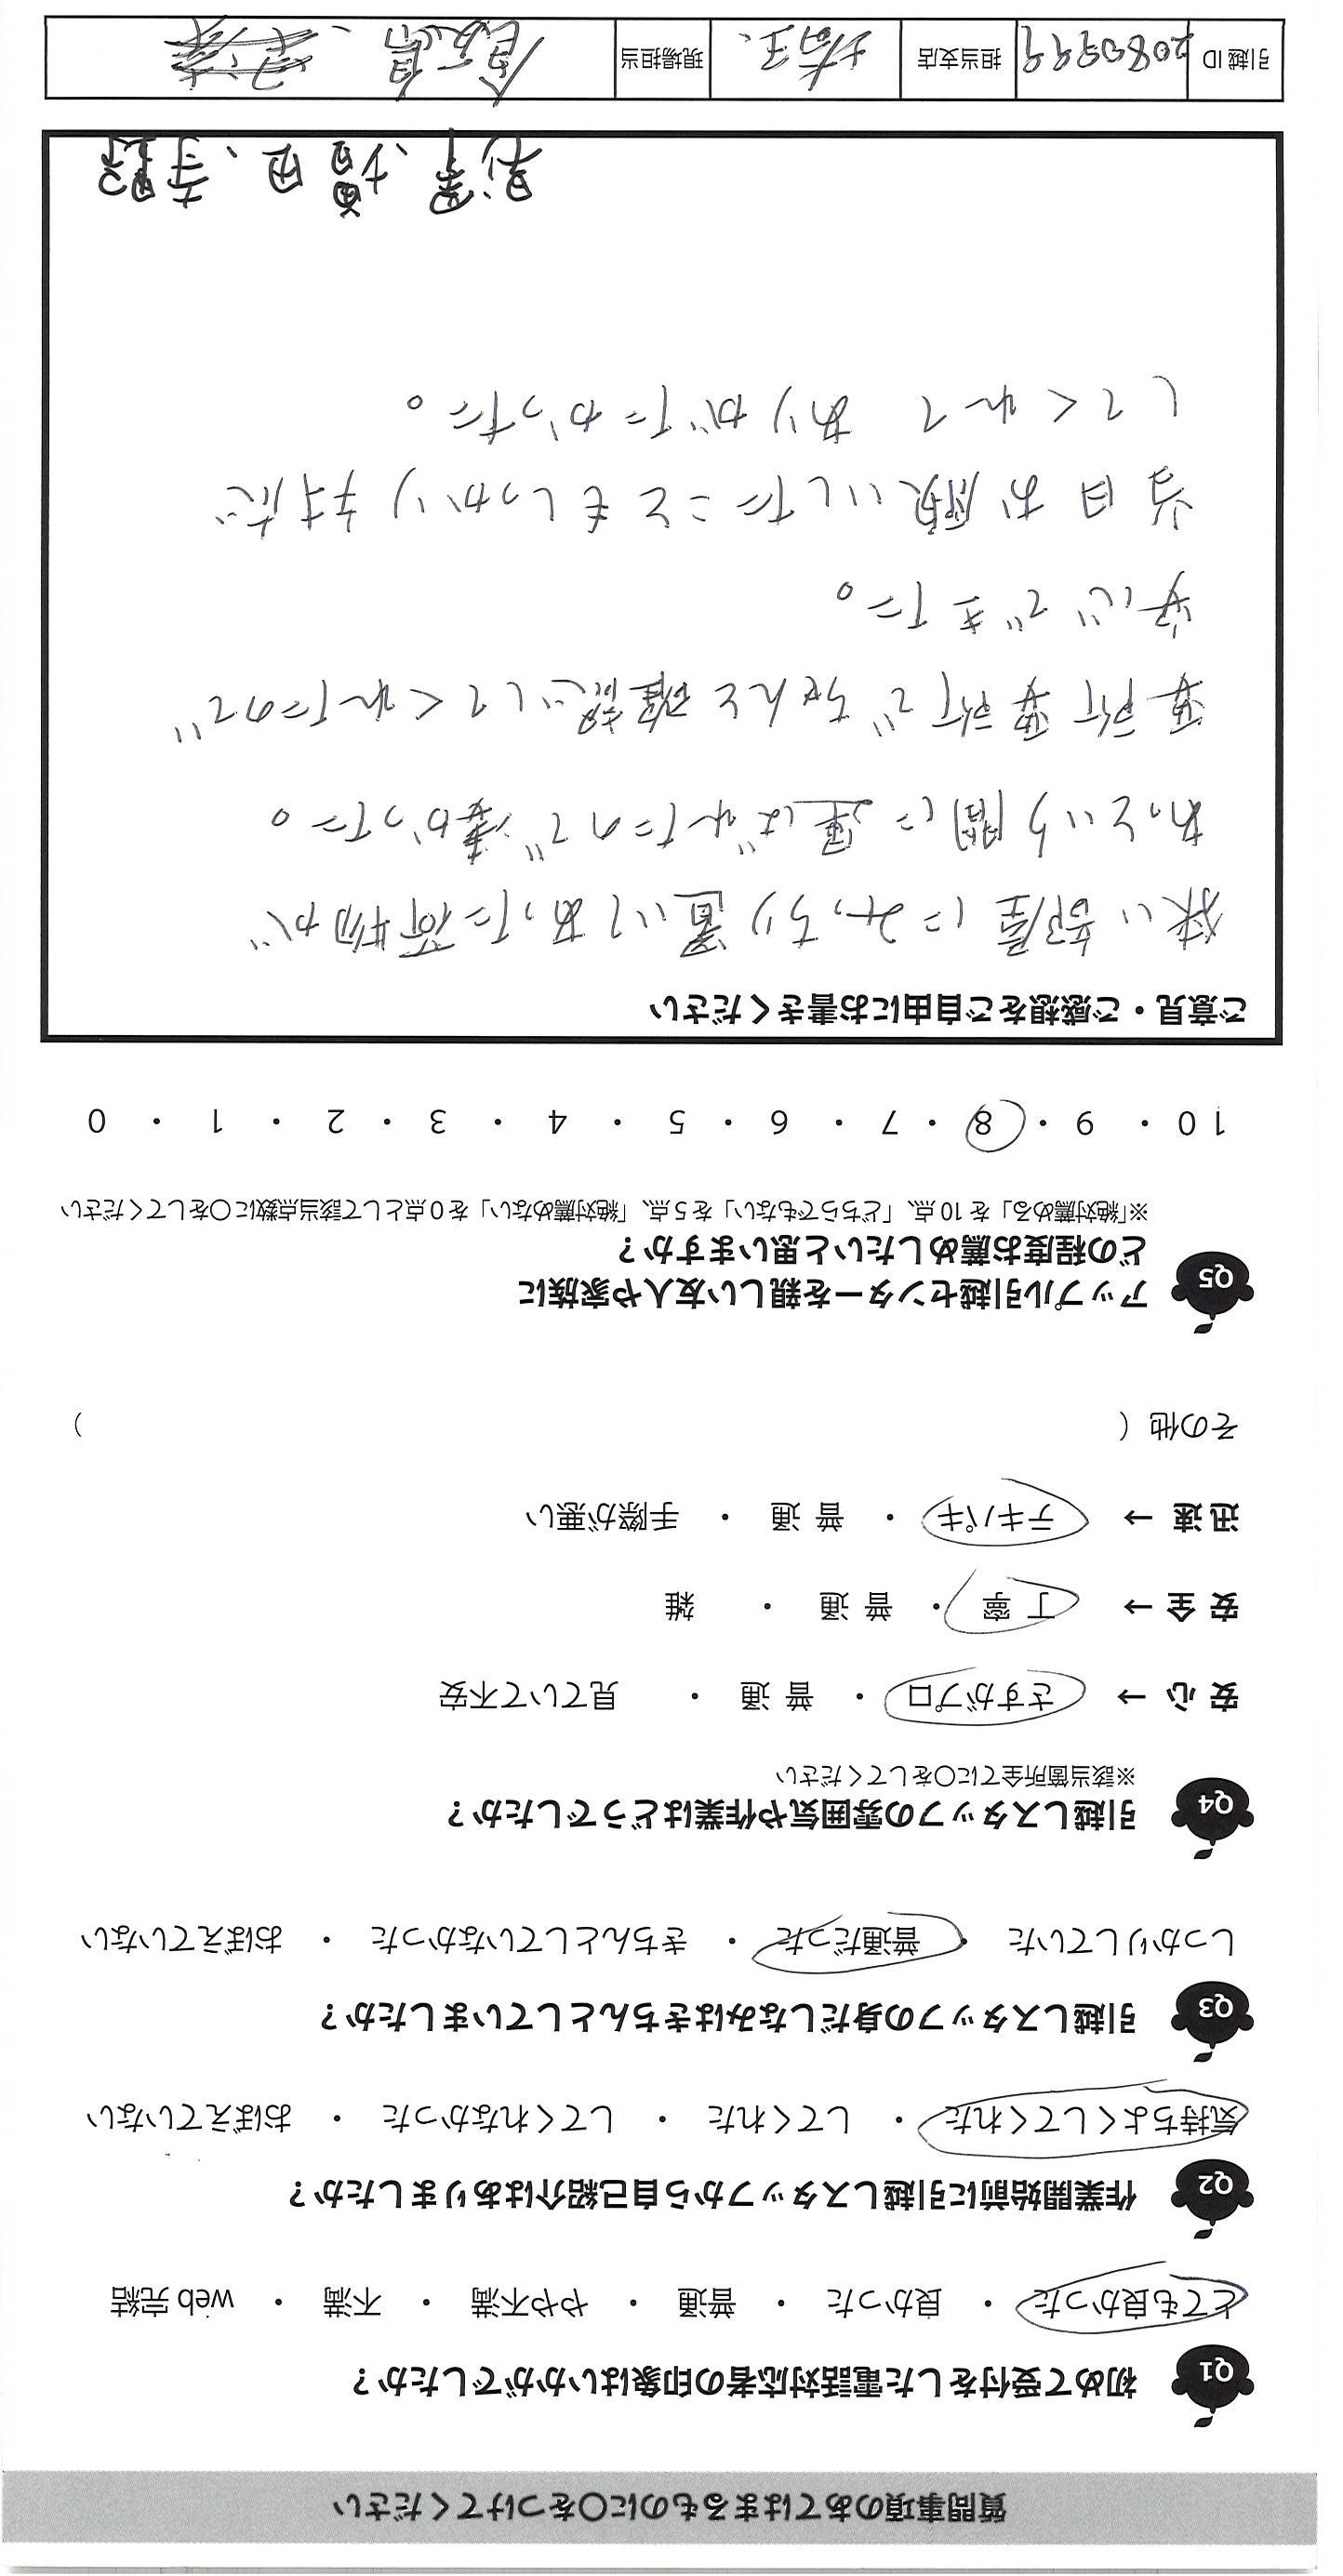 質問事項のあてはまるものに〇をつけてください
Q1 初めて受付をした電話対応者の印象はいかがでしたか？
とても良かった ・ 良かった ・ 普通 ・ やや不満 ・ 不満 ・ web 完結
Q2 作業開始前に引越しスタッフから自己紹介はありましたか？
気持ちよくしてくれた ・ してくれた ・ してくれなかった ・ おぼえていない
Q3 引越しスタッフの身だしなみはきちんとしていましたか？
しっかりしていた ・ 普通だった ・ きちんとしていなかった ・ おぼえていない
Q4 引越しスタッフの雰囲気や作業はどうでしたか？
※該当箇所全てに〇をしてください
安心 → さすがプロ ・ 普通 ・ 見ていて不安
安全 → 丁寧 ・ 普通 ・ 雑
迅速 → テキパキ ・ 普通 ・ 手際が悪い
その他（ ）
Q5 アップル引越センターを親しい友人や家族に
どの程度お薦めしたいと思いますか？
※「絶対薦める」を 10 点、「どちらでもない」を 5 点、「絶対薦めない」を 0 点として該当点数に〇をしてください
10 ・ 9 ・ 8 ・ 7 ・ 6 ・ 5 ・ 4 ・ 3 ・ 2 ・ 1 ・ 0
ご意見・ご感想をご自由にお書きください
狭い部屋にみっちり置いてあった荷物が
あっという間に運ばれたので凄かった。
要所要所でちゃんと確認してくれたので
安心できた。
当日お願いしたこともしっかり対応
してくれて ありがたかった。
増田、寺野
引越 ID 担当支店 埼玉 現場担当 飯島、